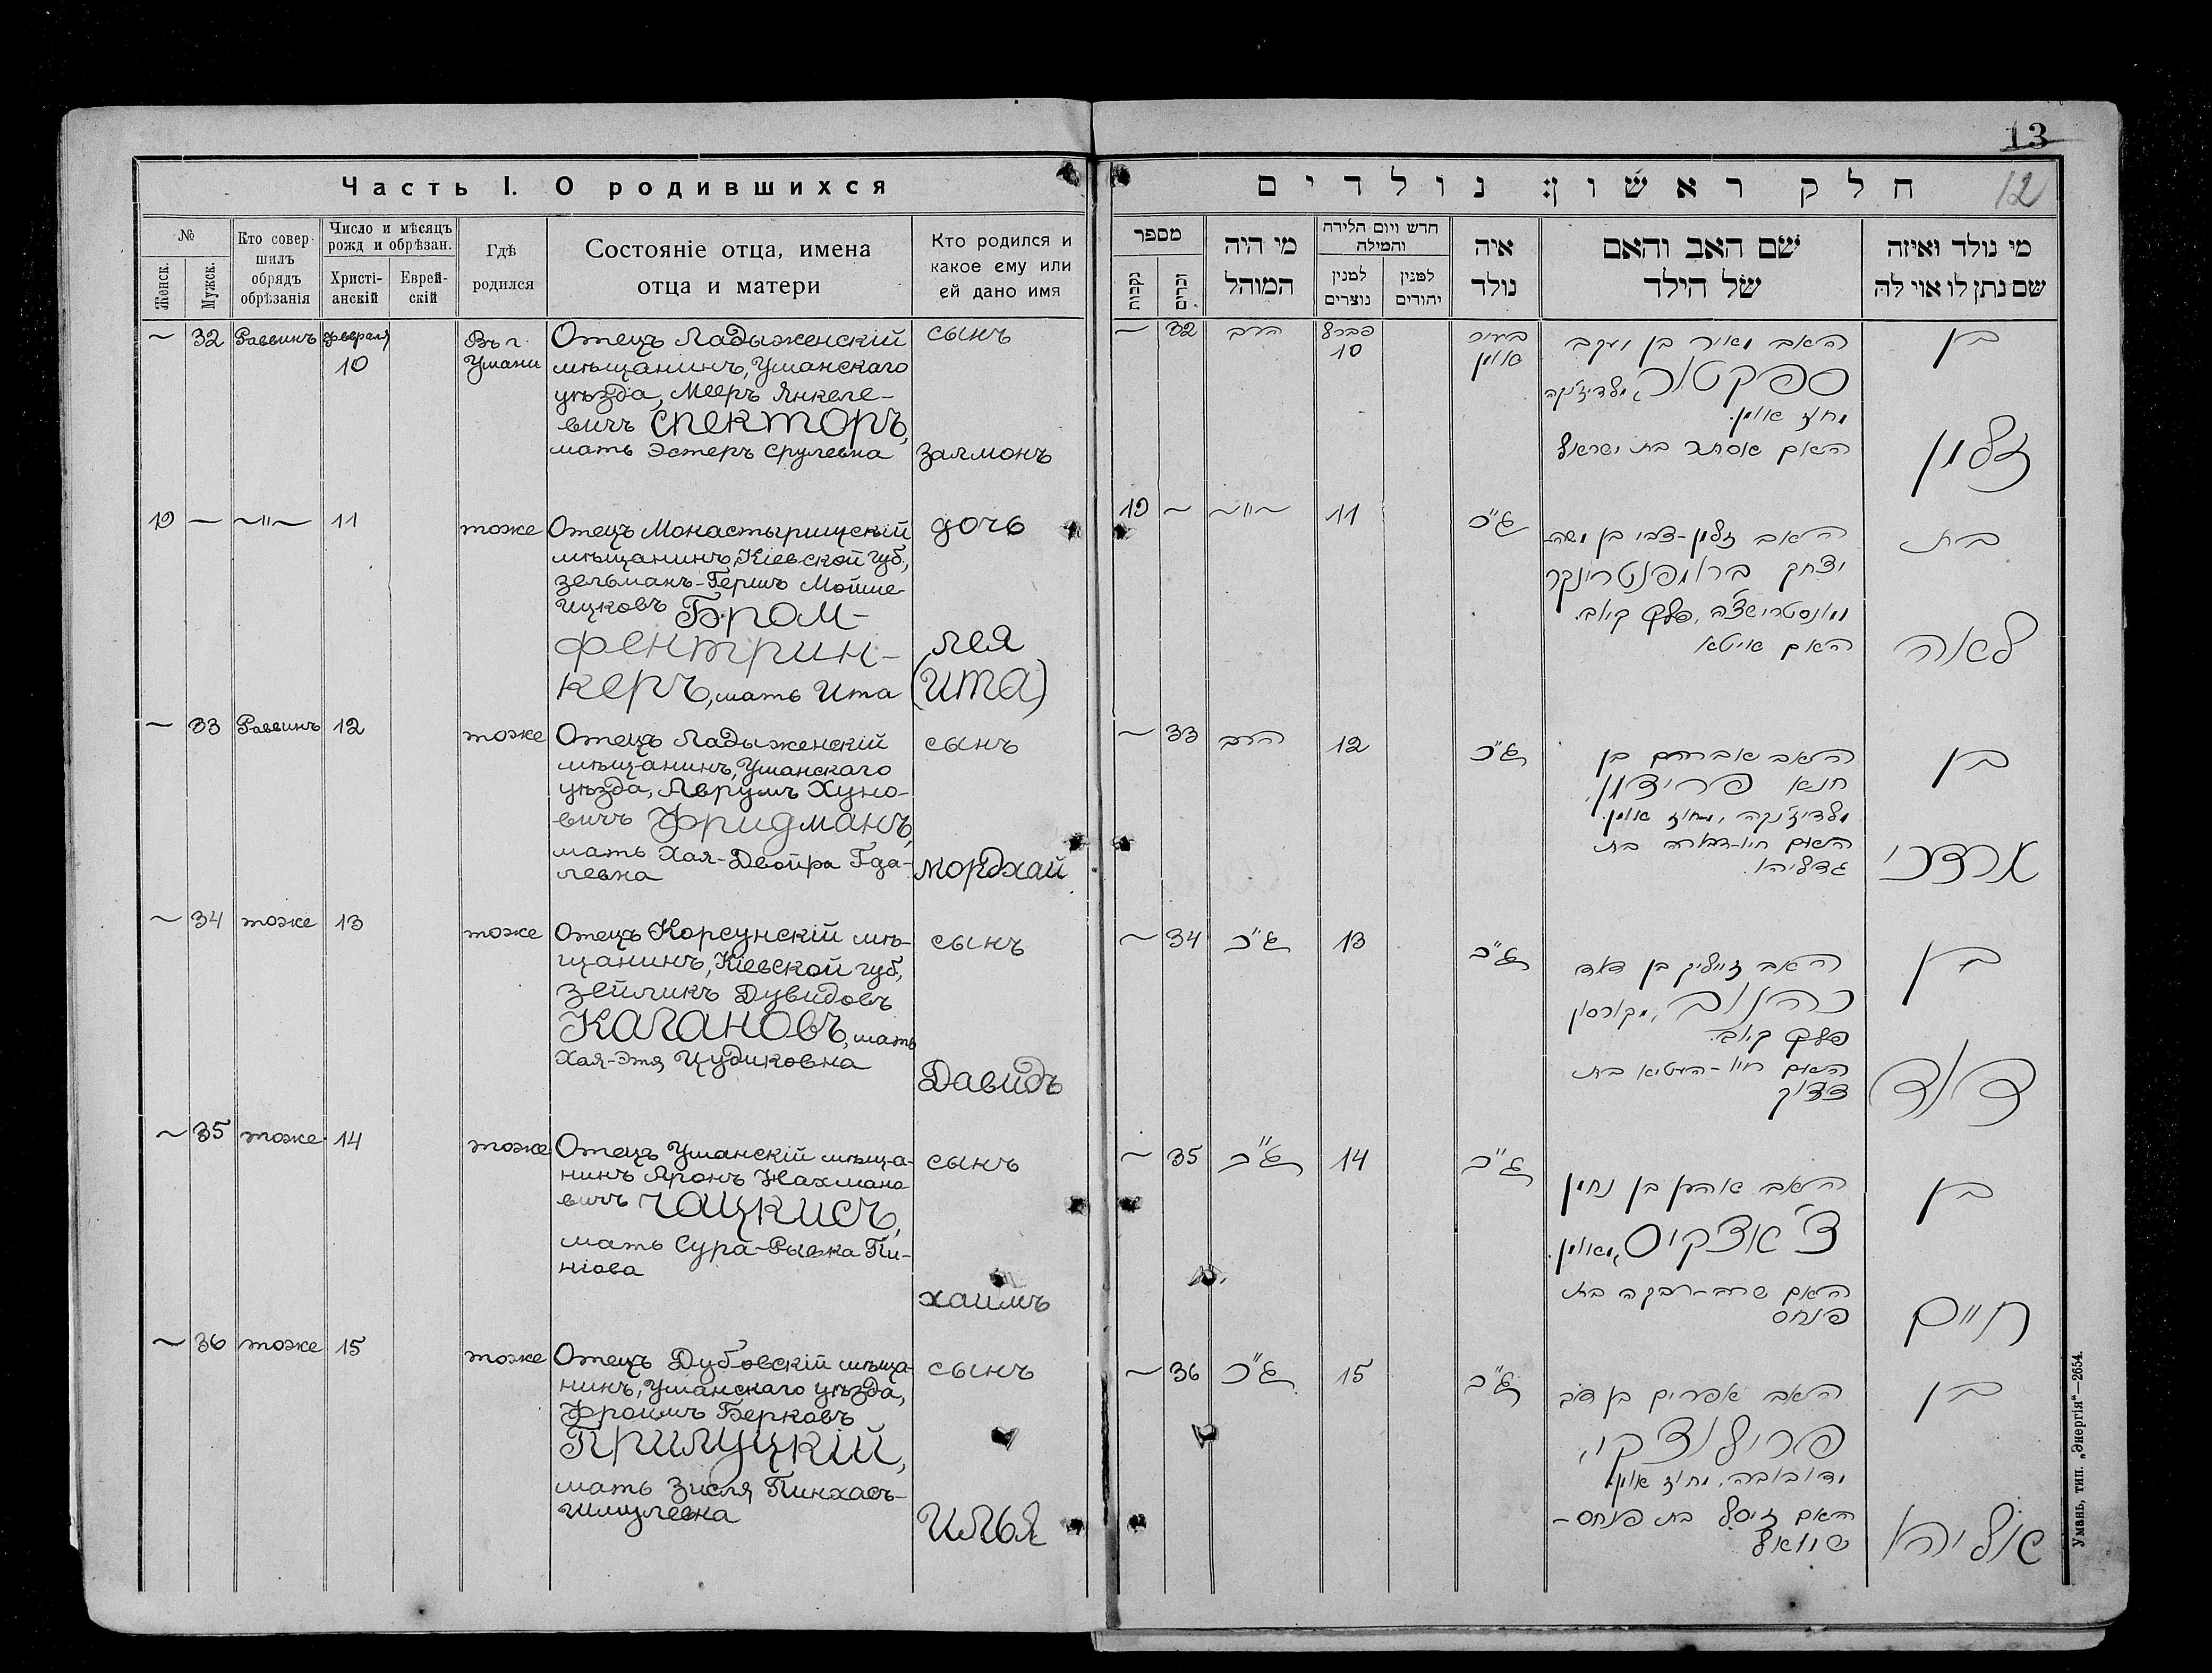 Часть I. О родившихся
№
Женск.
Мужск.
Кто совер-
шилъ
обрядъ
обрѣзанія
Число и мѣсяцъ
рожд и обрѣзан.
Христі-
анскій
Еврей-
скій
Гдѣ
родился
Состояніе отца, имена
отца и матери
Кто родился и
какое ему или
ей дано имя
~ 32 Раввинъ февраля
10
Въ г.
Умани
Отецъ Ладыженскій
мѣщанинъ, Уманскаго
уѣзда, Мееръ Янкеле-
вичъ Спекторъ,
мать Эстеръ Срулевна
сынъ
Залмонъ
19 — ~"~ 11
тоже
Отецъ Монастырищскій
мѣщанинъ, Кіевской губ.,
Зельманъ-Гершъ Мойше
Ицковъ Бром-
фентрин-
керъ, мать Ита
дочь
Лея
(Ита)
~ 33 Раввинъ 12
тоже
Отецъ Ладыженскій
мѣщанинъ, Уманскаго
уѣзда, Аврумъ Хуно-
вичъ Фридманъ,
мать Хая-Двойра Гда-
левна
сынъ
Мордхай
~ 34 тоже 13
тоже
Отецъ Корсунскій мѣ-
щанинъ, Кіевской губ,
Зейликъ Дувидовъ
Кагановъ, мать
Хая-Этя Цудиковна
сынъ
Давидъ
~ 35 тоже 14
тоже
Отецъ Уманскій мѣща-
нинъ Аронъ Нахмано
вичъ Чацкисъ,
мать Сура-Рывка Пи-
ніова
сынъ
Хаимъ
~ 36 тоже 15
тоже
Отецъ Дубовскій мѣща-
нинъ, Уманскаго уѣзда,
Фроимъ Берковъ
Прилуцкій,
мать Зисля Пинхасъ-
Шмулевна
сынъ
Илья
13
12
חלק ראשון: נולדים
מספר
נקבות
זכרים
מי היה
המוהל
חדש ויום הלידה
והמילה
למנין
נוצרים
למנין
יהודים
איה
נולד
שם האב והאם
של הילד
מי נולד ואיזה
שם נתן לו או לה
~ 32 הרב
פברל
10
בעיר
אומן
האב מאיר בן יעקב
ספקטור, מלדיז'נקה
מחוז אומן.
האם אסתר בת ישראל
בן
זלמן
19 ~ ~"~ 11
ג"כ
האב זלמן-צבי בן משה-
יצחק בראמפנטרינקר
ממנסטרישצ'ה, פלך קיוב.
האם איטא
בת
לאה
~ 33 הרב 12
ג"כ
האב אברהם בן
חנא פרידמן,
מלדיז'נקה, מחוז אומן.
האם חיה-דבורה בת
גדליהו.
בן
מרדכי
~ 34 ג"כ 13
ג"כ
האב זייליק בן דוד
כהנוב, מקורסון
פלך קיוב.
האם חיה-העטיא בת
צדוק
בן
דוד
~ 35 ג"כ 14
ג"כ
האב אהרן בן נחמן
צ'אצקיס, מאומן.
האם שרה-רבקה בת
פינחס
בן
חיים
~ 36 ג"כ 15
ג"כ
האב אפרים בן דוב
פרילוצקי,
מדובובה, מחוז אומן.
האם זיסל בת פנחס-
שמואל
בן
אליהו
Умань, тип. „Энергія"—2654.